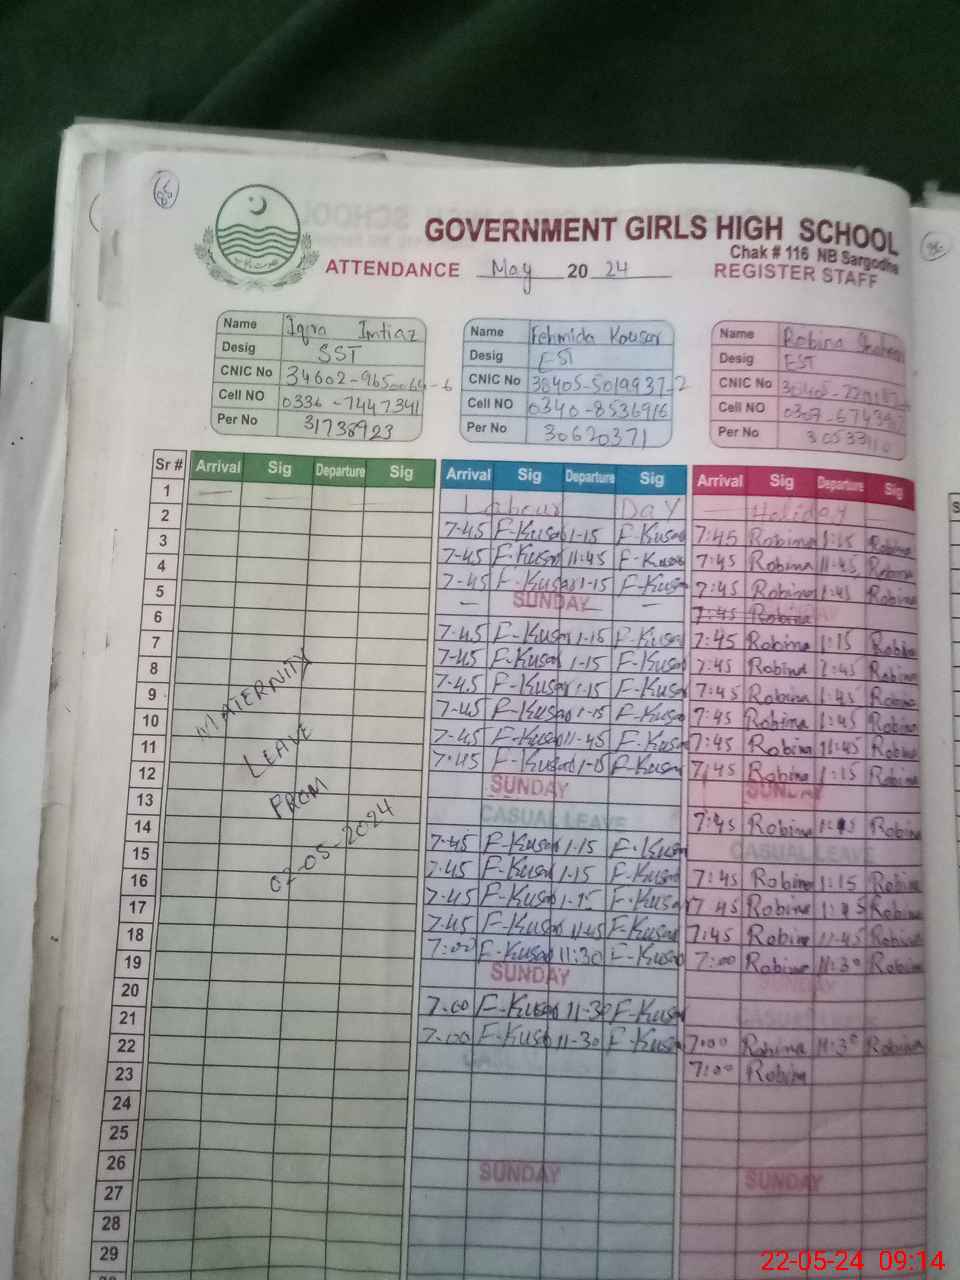 GOVERNMENT GIRLS HIGH SCHOOL
Chak # 116 NB Sargodha
ATTENDANCE May 20 24 REGISTER STAFF
Name Iqra Imtiaz Name Fehmida Kousar Name Robina
Desig SST Desig EST Desig EST
CNIC No 34602-9650064-6 CNIC No 38405-5019937-2 CNIC No
Cell NO 0336-7447341 Cell NO 0340-8536916 Cell NO
Per No 31738923 Per No 30620371 Per No
Sr # Arrival Sig Departure Sig Arrival Sig Departure Sig Arrival Sig Departure Sig
1 Labour DAY Holiday
2 7-45 F-Kusar 1-15 F-Kusar 7:45 Robina 1:15 Robina
3 7-45 F-Kusar 11-45 F-Kusar 7:45 Robina 11:45 Robina
4 7-45 F-Kusar 1-15 F-Kusar 7:45 Robina 1:45 Robina
5 SUNDAY 7:45 Robina
6 7-45 F-Kusar 1-15 F-Kusar 7:45 Robina 1:15 Robina
7 7-45 F-Kusar 1-15 F-Kusar 7:45 Robina 1:45 Robina
8 7-45 F-Kusar 1-15 F-Kusar 7:45 Robina 1:45 Robina
9 7-45 F-Kusar 1-15 F-Kusar 7:45 Robina 1:45 Robina
10 7-45 F-Kusar 11-45 F-Kusar 7:45 Robina 11:45 Robina
11 7-45 F-Kusar 1-15 F-Kusar 7:45 Robina 1:15 Robina
12 SUNDAY SUNDAY
13 CASUAL LEAVE 7:45 Robina Robina
14 7-45 F-Kusar 1-15 F-Kusar CASUAL LEAVE
15 7-45 F-Kusar 1-15 F-Kusar 7:45 Robina 1:15 Robina
16 7-45 F-Kusar 1-15 F-Kusar 7:45 Robina Robina
17 7-45 F-Kusar 11-45 F-Kusar 7:45 Robina 11-45 Robina
18 7:00 F-Kusar 11:30 F-Kusar 7:00 Robina 11:30 Robina
19 SUNDAY SUNDAY
20 7-00 F-Kusar 11-30 F-Kusar CASUAL LEAVE
21 7-00 F-Kusar 11-30 F-Kusar 7:00 Robina 11:30 Robina
22 7:00 Robina
23
24
25
26 SUNDAY SUNDAY
27
28
29
MATERNITY
LEAVE
FROM
02-05-2024
22-05-24 09:14